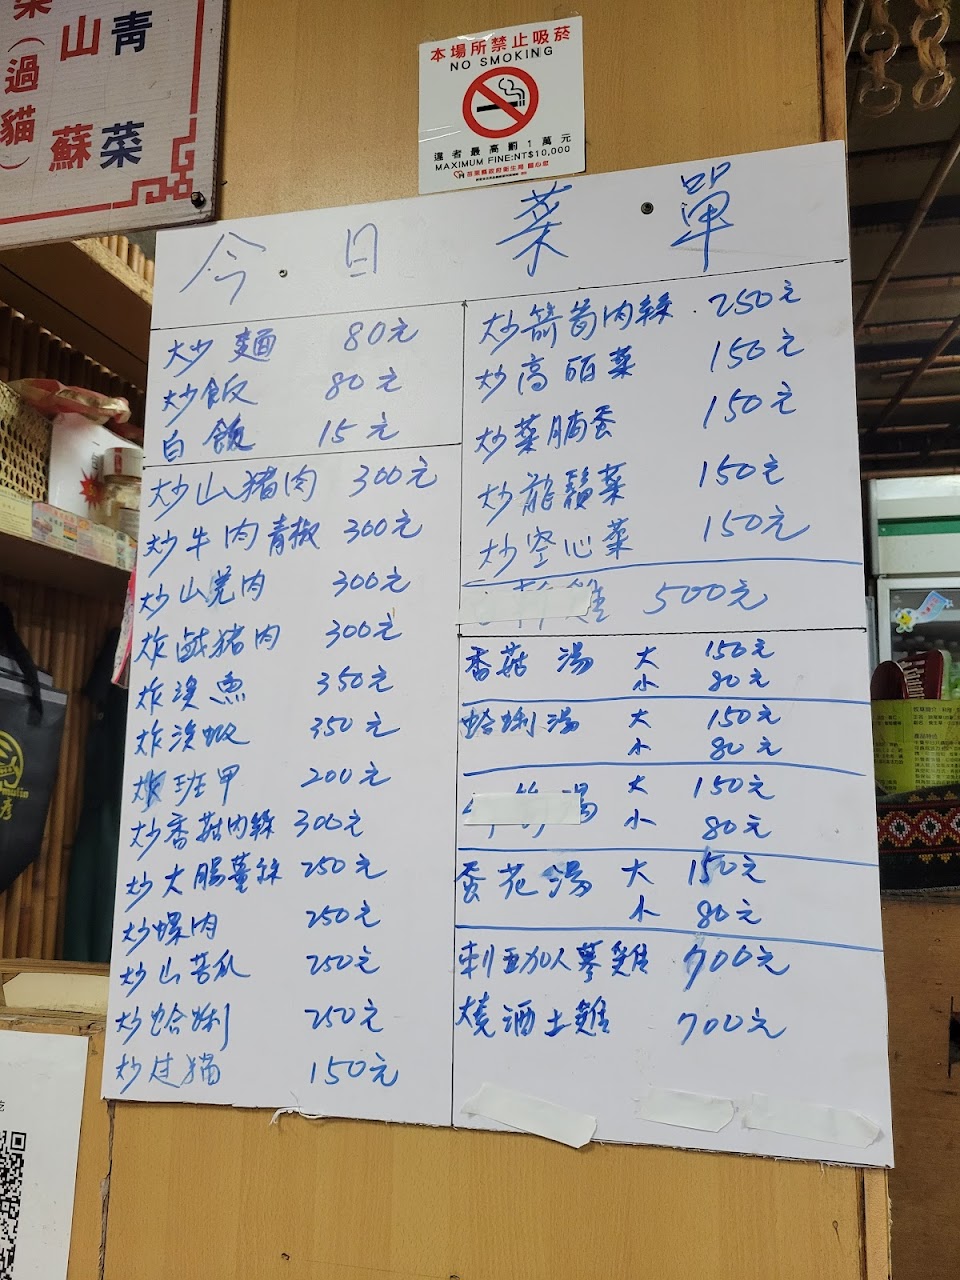 青
山
菜
蘇
(過貓)
本場所禁止吸菸
NO SMOKING
違者最高罰1萬元
MAXIMUM FINE:NT$10,000
今日菜單
炒麵 80元
炒飯 80元
白飯 15元
炒山猪肉 300元
炒牛肉青椒 300元
炒山羌肉 300元
炸鹹猪肉 300元
炸溪魚 350元
炸溪蝦 350元
炸班甲 200元
炒香菇肉絲 300元
炒大腸薑絲 250元
炒螺肉 250元
炒山苦瓜 250元
炒蛤蜊 250元
炒过猫 150元
炒箭筍肉絲 250元
炒高丽菜 150元
炒菜脯蛋 150元
炒龍鬚菜 150元
炒空心菜 150元
雞 500元
香菇湯 大 150元
小 80元
蛤蜊湯 大 150元
小 80元
湯 大 150元
小 80元
蛋花湯 大 150元
小 80元
刺五加人蔘雞 700元
燒酒土雞 700元